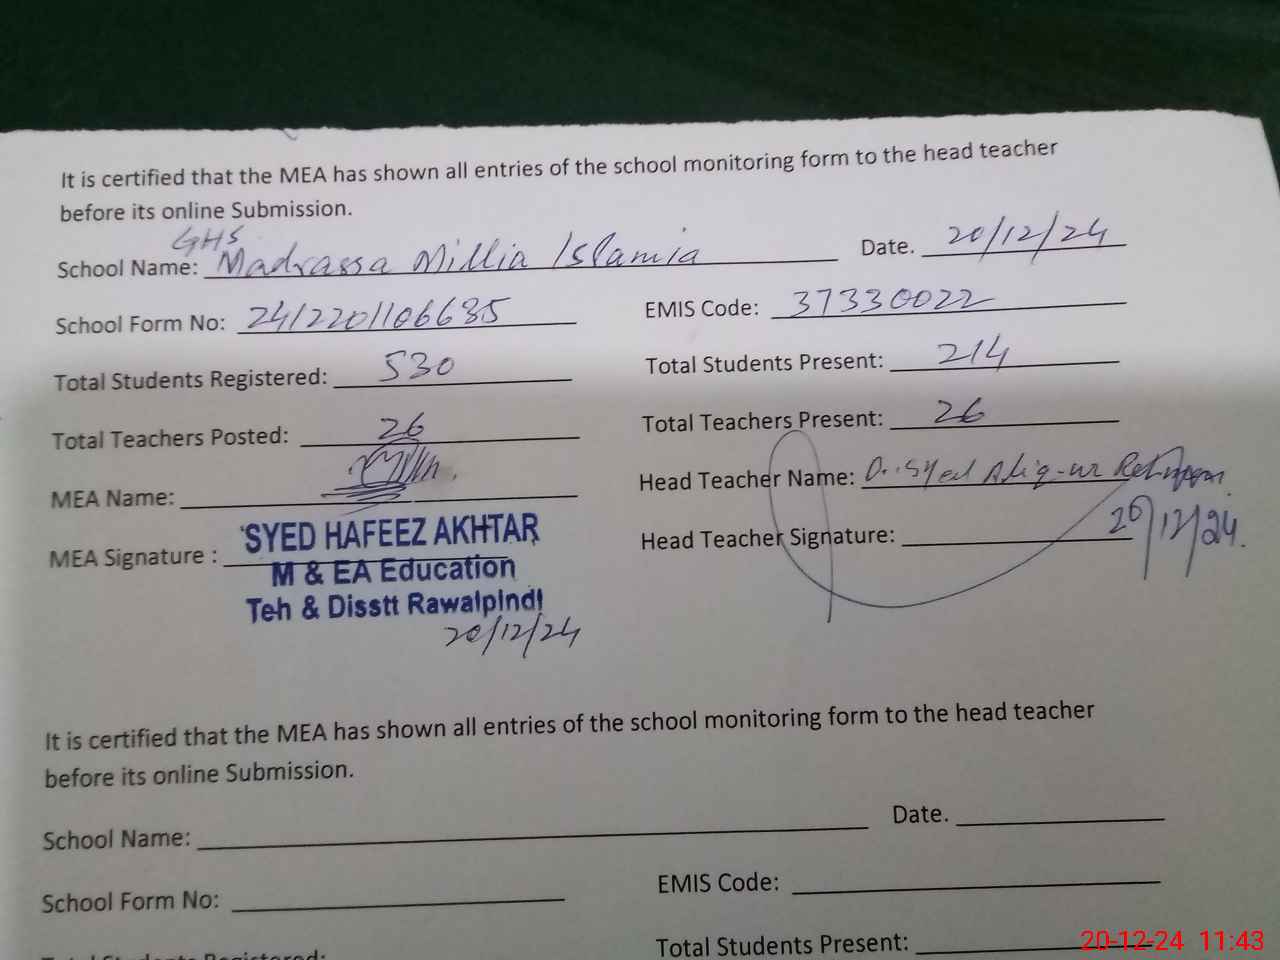 It is certified that the MEA has shown all entries of the school monitoring form to the head teacher
before its online Submission.
GHS
School Name: Madrassa Millia Islamia Date. 20/12/24
School Form No: 2412201106685 EMIS Code: 37330022
Total Students Registered: 530 Total Students Present: 214
Total Teachers Posted: 26 Total Teachers Present: 26
MEA Name: Head Teacher Name: Dr. Syed Atiq-ur Rehman
MEA Signature : Head Teacher Signature: 20/12/24.
SYED HAFEEZ AKHTAR
M & EA Education
Teh & Disstt Rawalpindi
20/12/24
It is certified that the MEA has shown all entries of the school monitoring form to the head teacher
before its online Submission.
School Name: Date.
School Form No: EMIS Code:
Total Students Registered: Total Students Present:
20-12-24 11:43